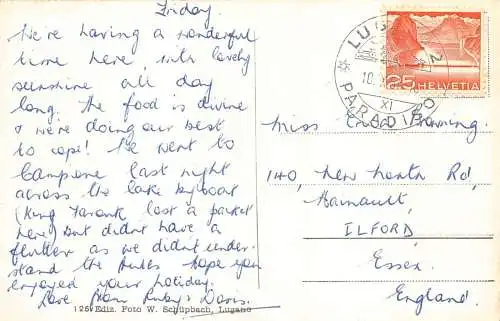 Friday
We're having a wonderful
time here, with lovely
sunshine all day
long. The food is divine
& we're doing our best
to cope! We went to
Campione last night
across the lake by boat
(King Farouk lost a packet
here) but didn't have a
flutter as we didn't under-
stand the rules. Hope you
enjoyed your holiday.
Love from Ruby & Doris.
125 Ediz. Foto W. Schüpbach, Lugano
LUGANO 2
10.
XI
PARADISO
25 HELVETIA
Miss
140, New North Rd,
Hainault,
ILFORD,
Essex.
England.